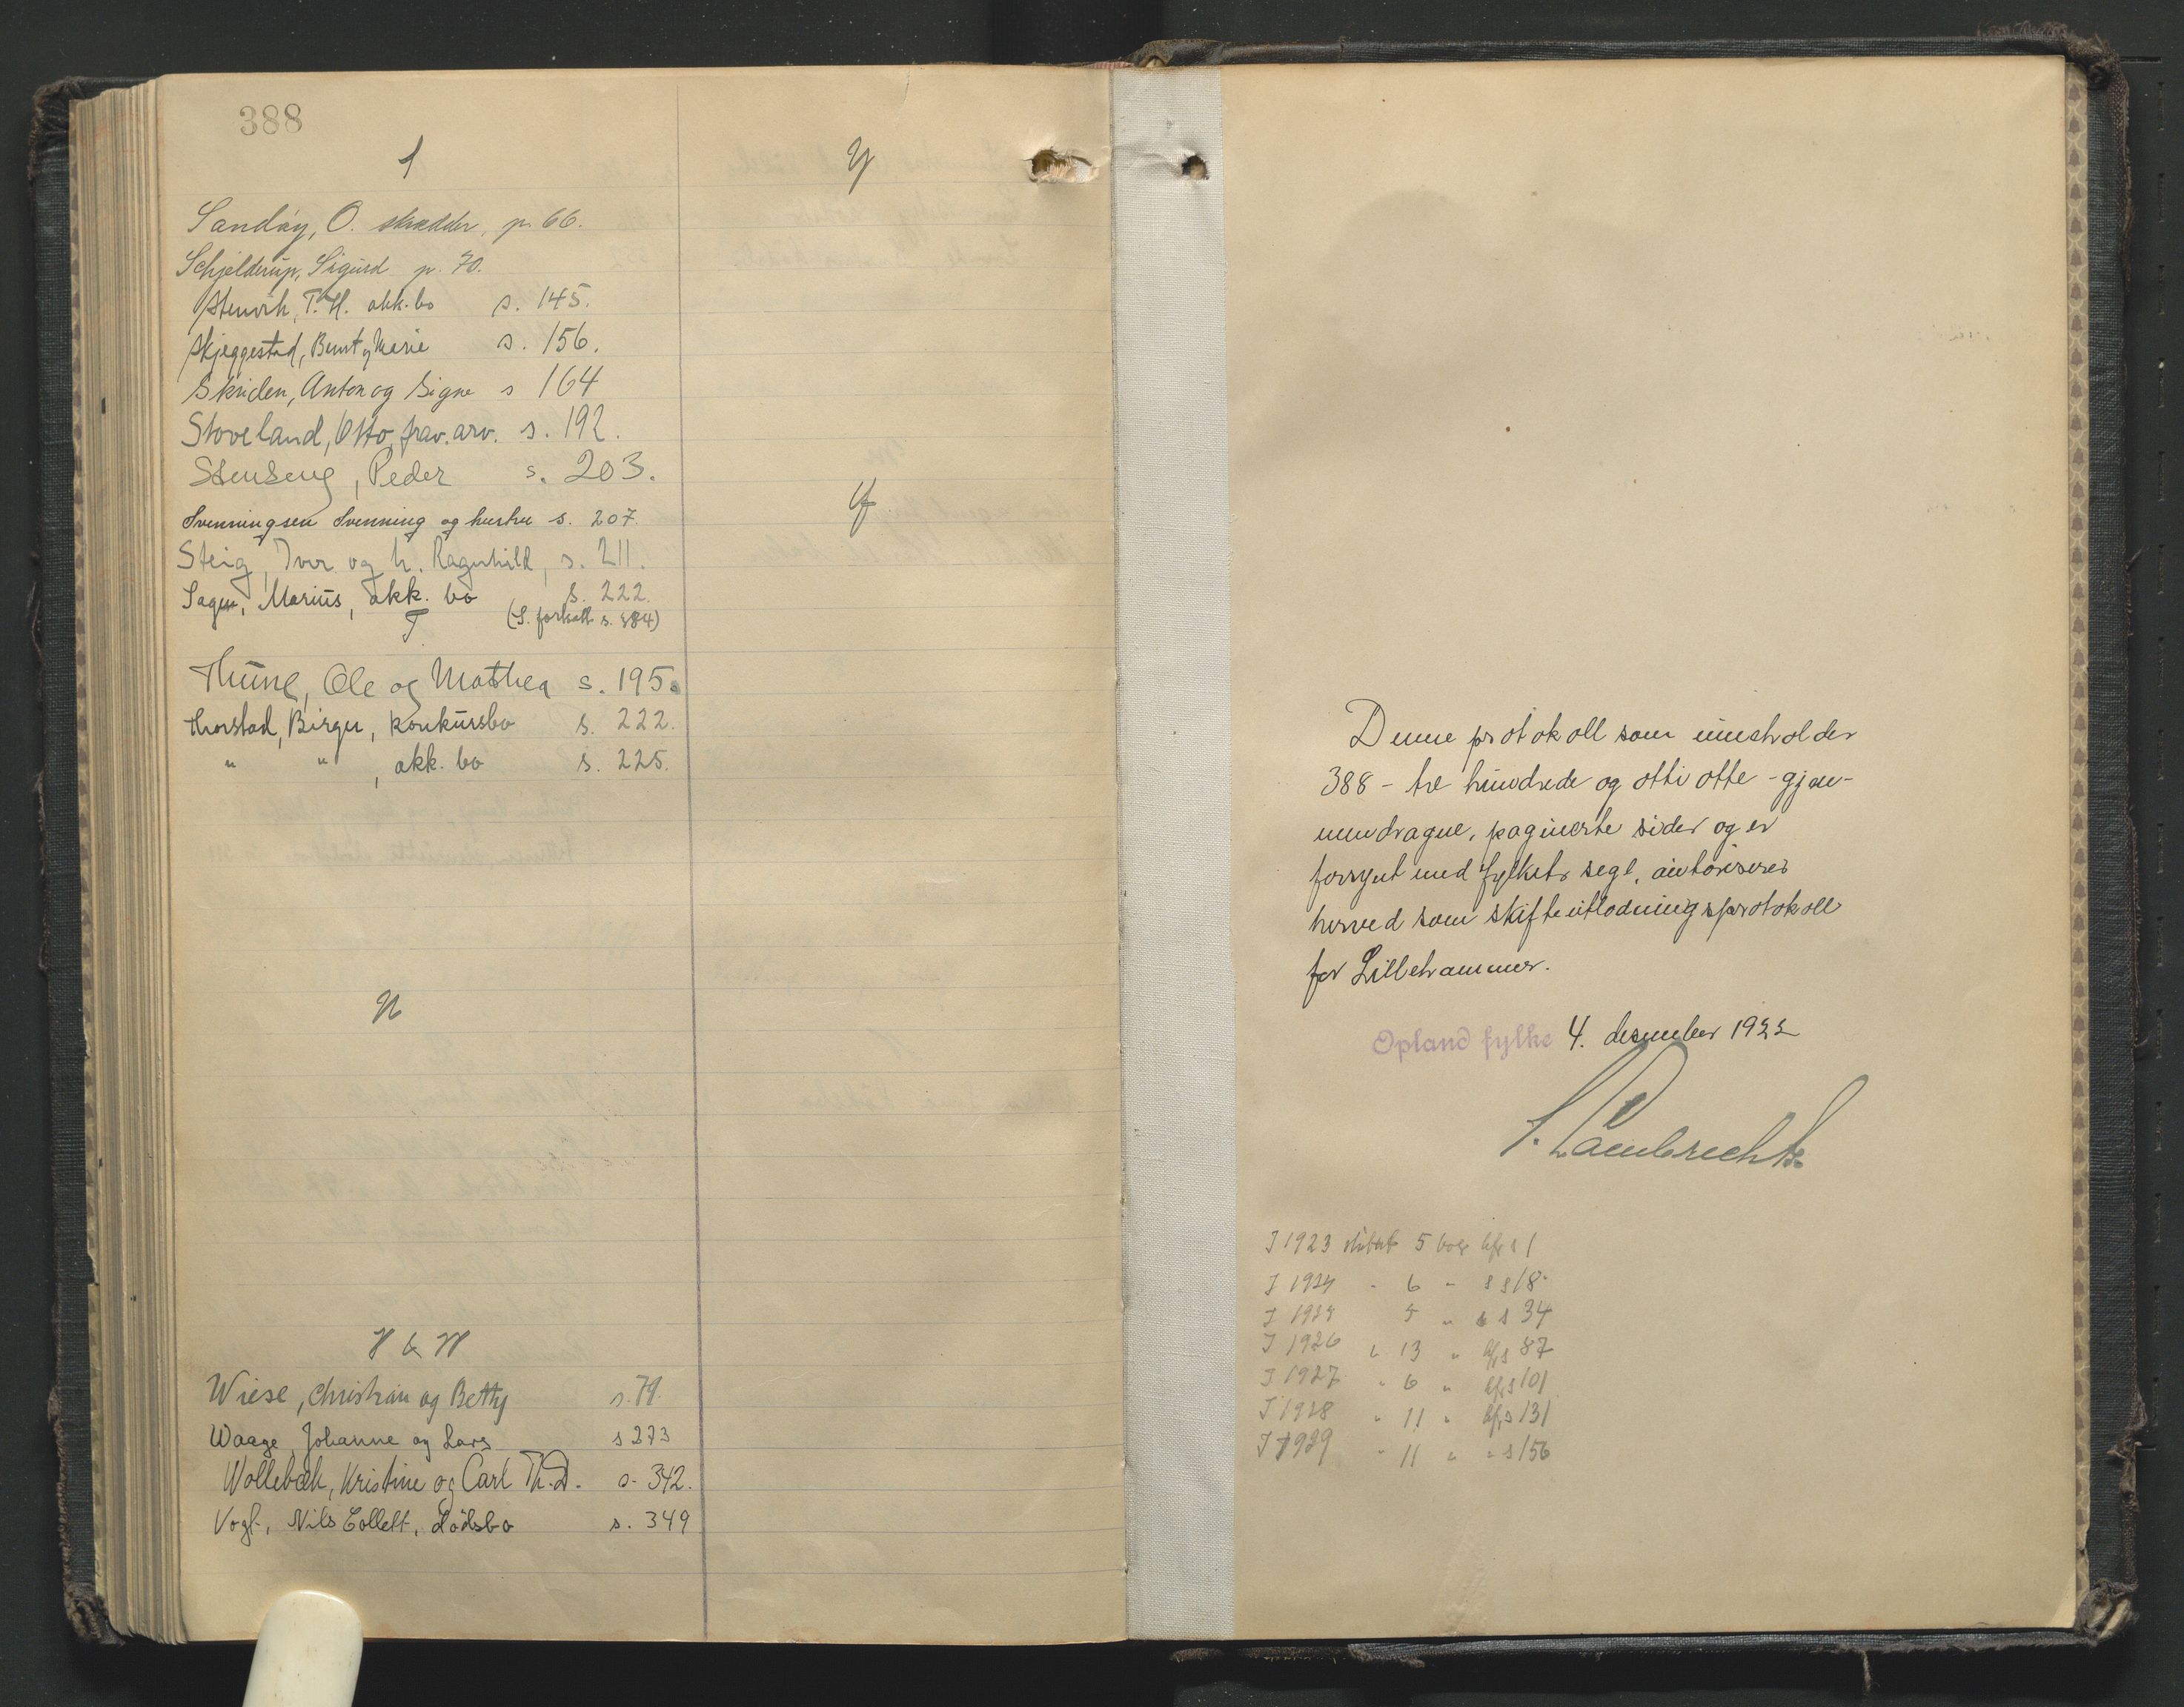 388
S
Sandøy, O. skrædder, p. 66.
Schjelderup, Sigurd p. 70.
Stenvik, T. H. akk.bo s. 145.
Skjeggestad, Bernt og Marie s. 156.
Skriden, Anton og Signe s 164
Stoveland, Otto, frav. arv. s. 192.
Stenseng, Peder s. 203.
Svenningsen Svenning og hustru s. 207.
Steig, Iver og h. Ragnhild, s. 211.
Sagen, Marius, akk. bo s. 222.
(S. fortsatt s. 384)
T
Thune, Ole og Mathea s. 195.
Thorstad, Birger, konkursbo s. 222.
" " , akk. bo s. 225.
U
V & W
Wiese, Christian og Betty s. 79.
Waage, Johanne og Lars s 273
Wollebæk, Kristine og Carl Th. D. s. 342.
Vogt, Nils Collett, dødsbo s. 349
Y
Ø
Denne protokoll som inneholder
388 - tre hundrede og otti otte - gjen-
nemdragne, paginerte sider og er
forsynt med fylkets segl, autoriseres
herved som skifteutlodningsprotokoll
for Lillehammer.
Opland fylke 4. desember 1922
S. Lambrechts
I 1923 sluttet 5 boer
I 1924 - 6 - s 18
I 1925 5 " s 34
I 1926 " 13 " 87
I 1927 " 6 " 101
I 1928 " 11 " 131
I 1929 " 11 " " s 156